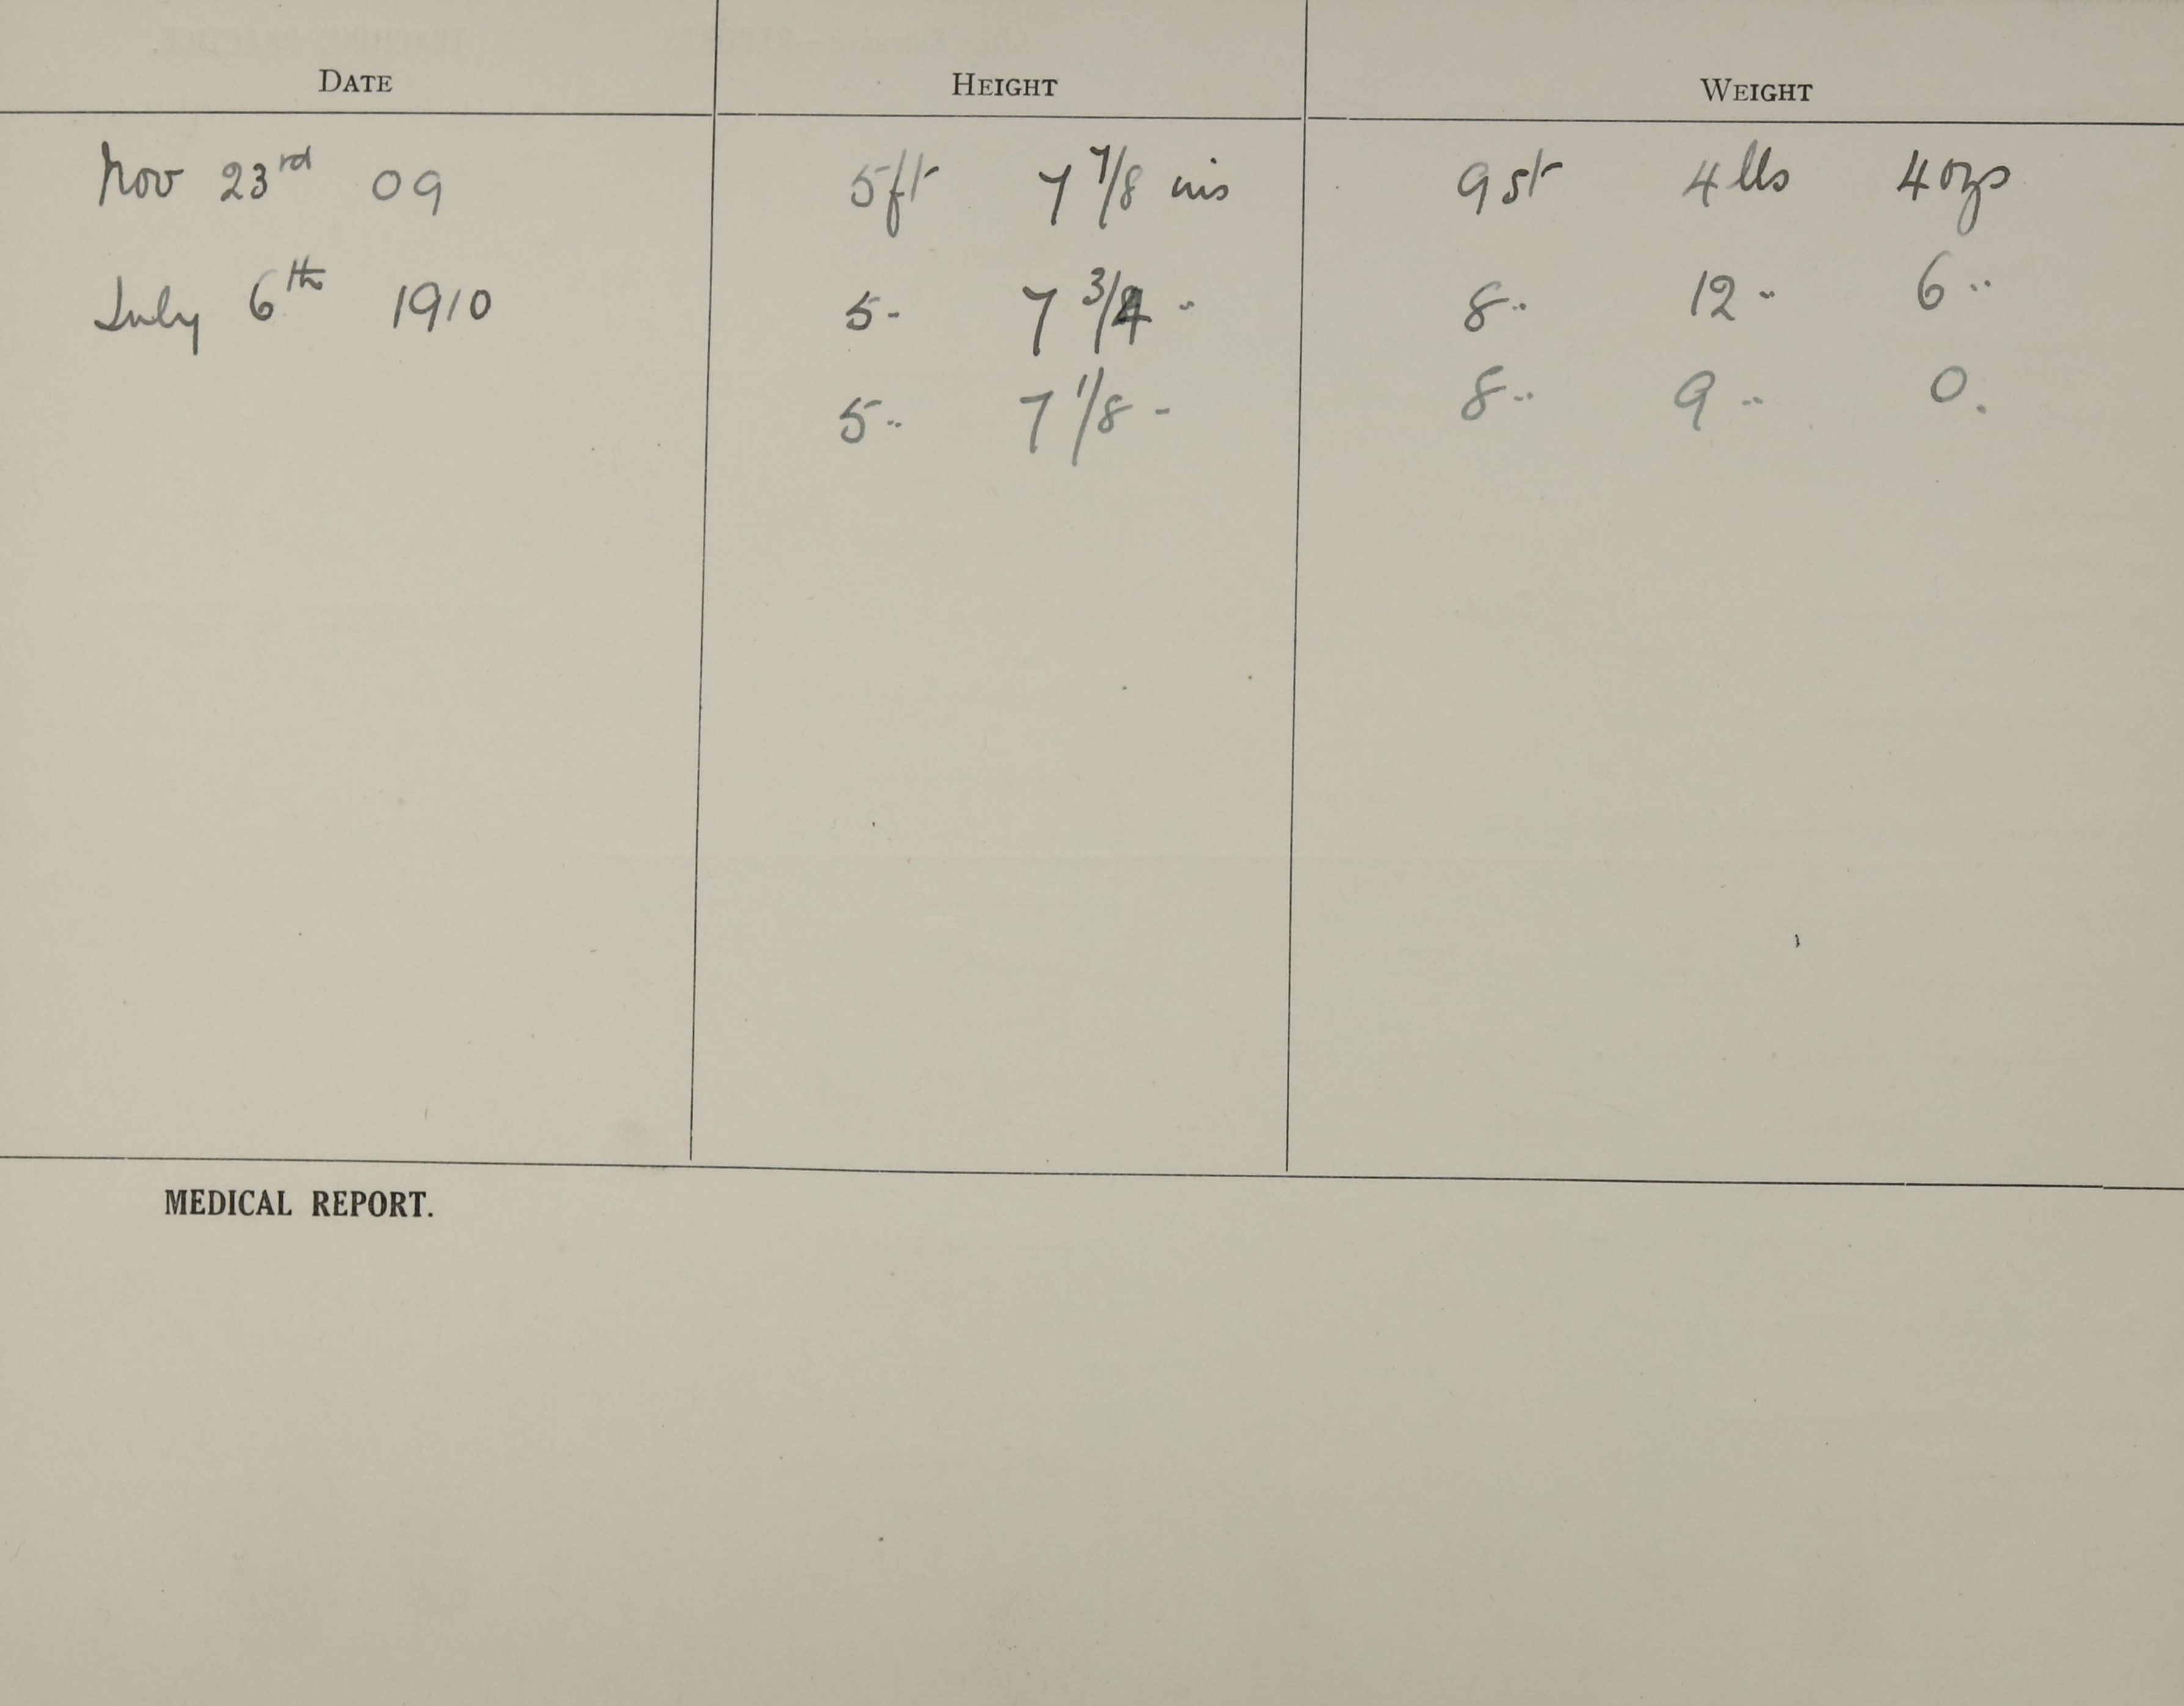 DATE HEIGHT WEIGHT
Nov 23rd 09 5ft 7 7/8 ins 9 st 4 lbs 4 ozs
July 6th 1910 5 - 7 3/4 " 8 " 12 " 6 "
5 " 7 1/8 - 8 " 9 " 0.
MEDICAL REPORT.